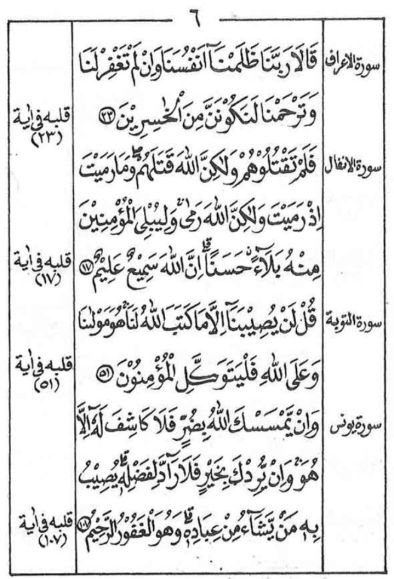 ٦
سورة الاعراف
قَالَا رَبَّنَا ظَلَمْنَآ اَنْفُسَنَا وَاِنْ لَّمْ تَغْفِرْ لَنَا
وَتَرْحَمْنَا لَنَكُوْنَنَّ مِنَ الْخٰسِرِيْنَ ﴿٢٣﴾
قلبه فى اية
(٢٣)
سورة الانفال
فَلَمْ تَقْتُلُوْهُمْ وَلٰكِنَّ اللّٰهَ قَتَلَهُمْ ۖ وَمَا رَمَيْتَ
اِذْ رَمَيْتَ وَلٰكِنَّ اللّٰهَ رَمٰى ۚ وَلِيُبْلِيَ الْمُؤْمِنِيْنَ
مِنْهُ بَلَآءً حَسَنًا ۗ اِنَّ اللّٰهَ سَمِيْعٌ عَلِيْمٌ ﴿١٧﴾
قلبه فى اية
(١٧)
سورة التوبة
قُلْ لَّنْ يُّصِيْبَنَآ اِلَّا مَا كَتَبَ اللّٰهُ لَنَا ۚ هُوَ مَوْلٰىنَا
وَعَلَى اللّٰهِ فَلْيَتَوَكَّلِ الْمُؤْمِنُوْنَ ﴿٥١﴾
قلبه فى اية
(٥١)
سورة يونس
وَاِنْ يَّمْسَسْكَ اللّٰهُ بِضُرٍّ فَلَا كَاشِفَ لَهٗٓ اِلَّا
هُوَ ۚ وَاِنْ يُّرِدْكَ بِخَيْرٍ فَلَا رَآدَّ لِفَضْلِهٖ ۗ يُصِيْبُ
بِهٖ مَنْ يَّشَآءُ مِنْ عِبَادِهٖ ۗ وَهُوَ الْغَفُوْرُ الرَّحِيْمُ ﴿١٠٧﴾
قلبه فى اية
(١٠٧)